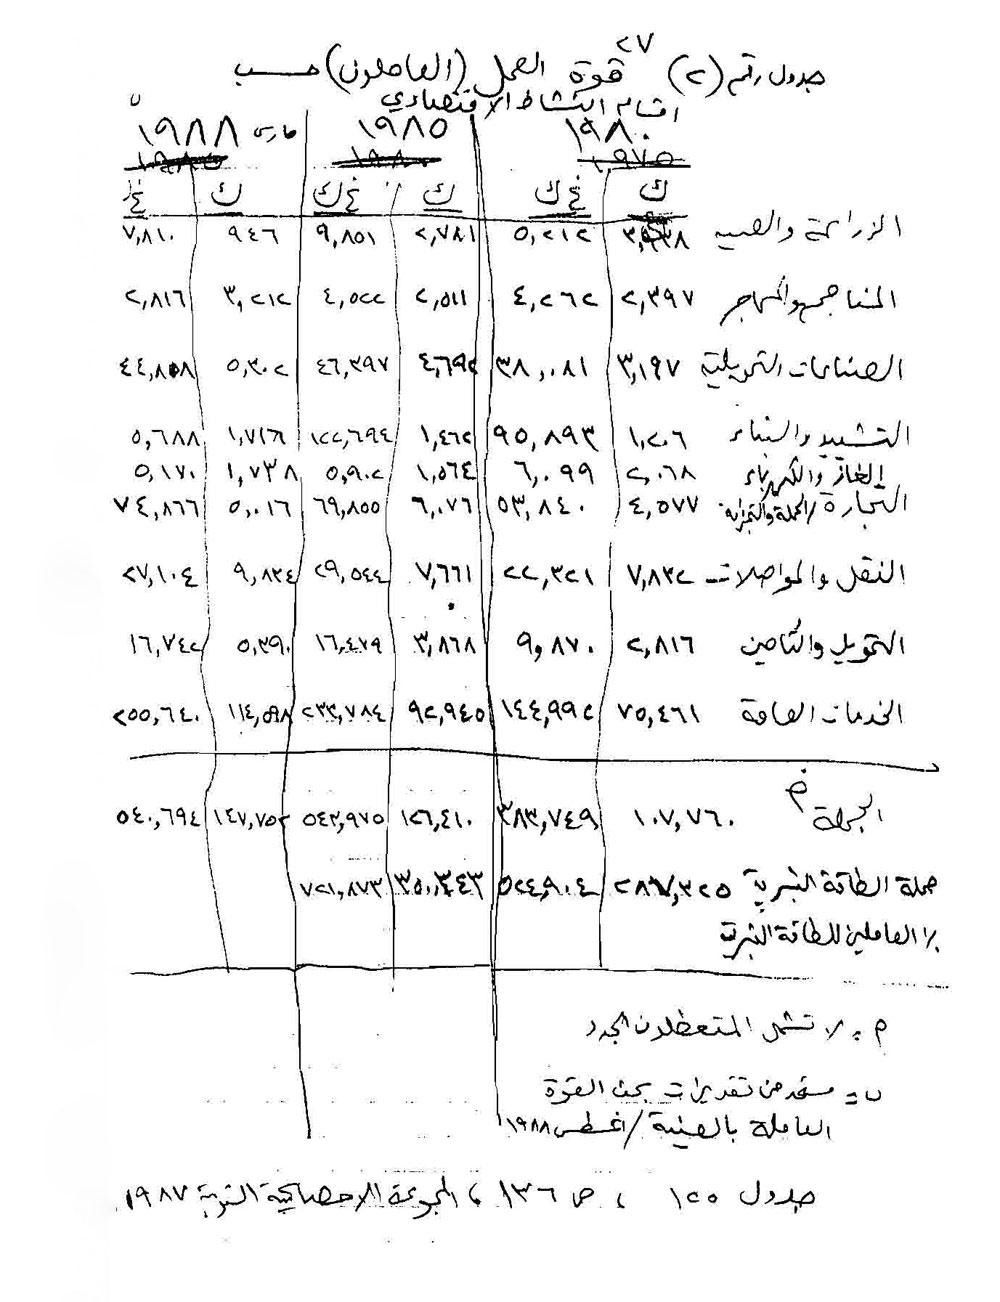 ٢٧
جدول رقم (٢) قوة العمل (العاملون) حسب
اقسام النشاط الاقتصادي
١٩٨٠ ١٩٨٥ مارس ١٩٨٨ ں
ك غ ك ك غ ك ك غ
الزراعة والصيد ٥,٢١٢ ٢,٧٨١ ٩,٨٥١ ٩٤٦ ٧,٨١٠
المناجم والمحاجر ٢,٣٩٧ ٤,٢٦٢ ٢,٥١١ ٤,٥٢٢ ٣,٢١٢ ٢,٨١٦
الصناعات التحويلية ٣,١٩٧ ٣٨,٠٨١ ٤,٦٩٢ ٤٦,٣٩٧ ٥,٣٠٢ ٤٤,٨٥٨
التشييد والبناء ١,٢٠٦ ٩٥,٨٩٣ ١,٤٦٢ ١٢٢,٦٩٤ ١,٧١٦ ٥,٦٨٨
الغاز والكهرباء ٢,٠٦٨ ٦,٠٩٩ ١,٥٦٤ ٥,٩٠٢ ١,٧٣٨ ٥,١٧٠
التجارة /الجملة والتجزئة ٤,٥٧٧ ٥٣,٨٤٠ ٦,٠٧٦ ٦٩,٨٥٥ ٥,٠١٦ ٧٤,٨٦٦
النقل والمواصلات ٧,٨٣٢ ٢٢,٣٢١ ٧,٦٦١ ٢٩,٥٤٤ ٩,٨٣٤ ٢٧,١٠٤
التمويل والتأمين ٢,٨١٦ ٩,٨٧٠ ٣,٨٦٨ ١٦,٤٧٩ ٥,٣٩٠ ١٦,٧٤٢
الخدمات العامة ٧٥,٤٦١ ١٤٤,٩٩٢ ٩٢,٩٤٥ ٢٣٣,٧٨٤ ١١٤,٥٩٨ ٢٥٥,٦٤٠
الجملة م ١٠٧,٧٦٠ ٣٨٣,٧٤٩ ١٢٦,٤١٠ ٥٤٢,٩٧٥ ١٤٧,٧٥٢ ٥٤٠,٦٩٤
جملة الطاقة البشرية ٢٨٧,٣٢٥ ٥٢٤,٩٠٤ ٣٥٠,٣٤٣ ٧٢١,٨٧٣
٪ العاملين للطاقة البشرية
م = لا تشمل المتعطلون الجدد
ں = مستمد من تقديرات بحث القوة
العاملة بالعينة / اغسطس ١٩٨٨
جدول ١٢٥ ، ص ١٣٦ ، المجموعة الاحصائية السنوية ١٩٨٧